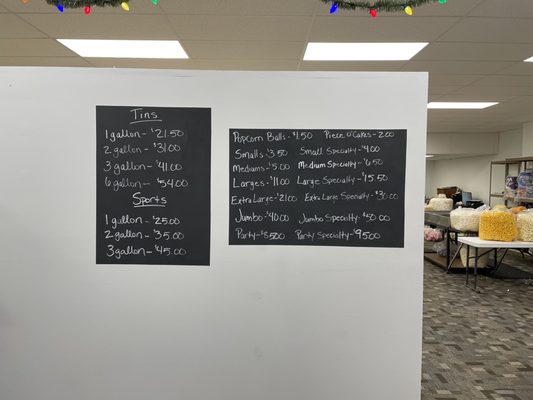 Tins
1 gallon - $21.50
2 gallon - $31.00
3 gallon - $41.00
6 gallon - $54.00
Sports
1 gallon - $25.00
2 gallon - $35.00
3 gallon - $45.00
Popcorn Balls - $1.50 Piece O'Cakes - 2.00
Smalls - $3.50 Small Specialty - $4.00
Mediums - $5.00 Medium Specialty - $6.50
Larges - $11.00 Large Specialty - $15.50
Extra Large - $21.00 Extra Large Specialty - $30.00
Jumbo - $40.00 Jumbo Specialty - $50.00
Party - $85.00 Party Specialty - $95.00